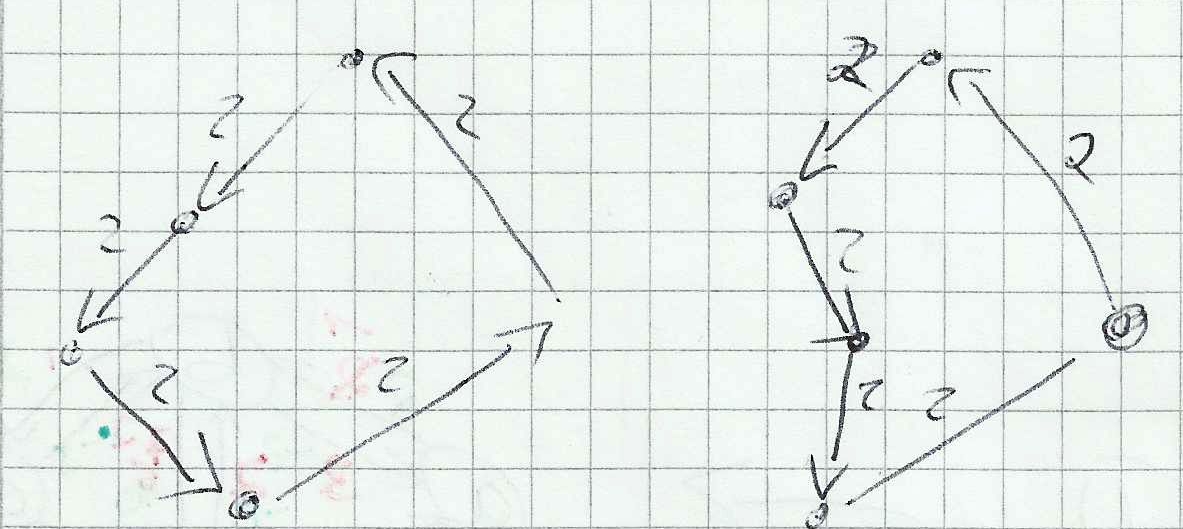 2 2
2 2
2 2
2 2
2 2